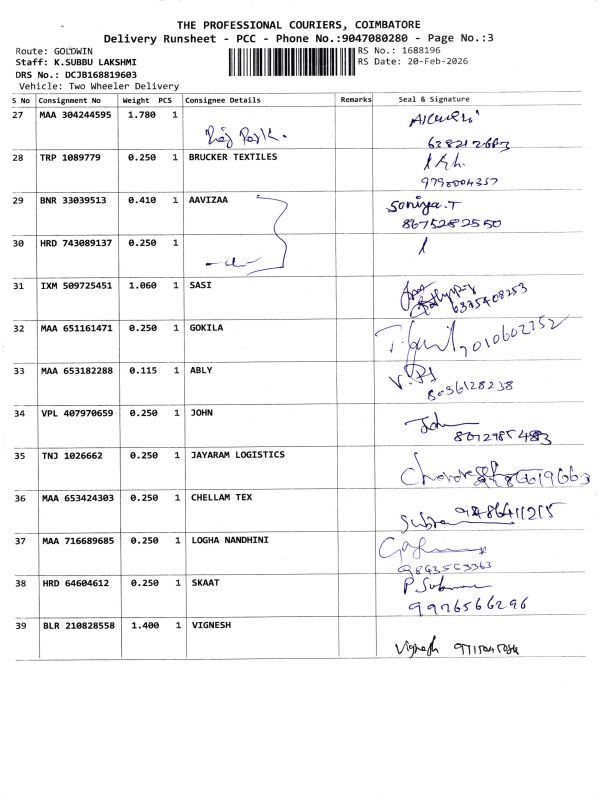 THE PROFESSIONAL COURIERS, COIMBATORE
Delivery Runsheet - PCC - Phone No.:9047080280 - Page No.:3
Route: GOLDWIN
RS No.: 1688196
Staff: K.SUBBU LAKSHMI
RS Date: 20-Feb-2026
DRS No.: DCJB168819603
Vehicle: Two Wheeler Delivery
S No Consignment No Weight PCS Consignee Details Remarks Seal & Signature
27 MAA 304244595 1.780 1
28 TRP 1089779 0.250 1 BRUCKER TEXTILES
9790004357
29 BNR 33039513 0.410 1 AAVIZAA Soniya.T
8675282550
30 HRD 743089137 0.250 1
31 IXM 509725451 1.060 1 SASI
6375408253
32 MAA 651161471 0.250 1 GOKILA
9010602752
33 MAA 653182288 0.115 1 ABLY
8056128238
34 VPL 407970659 0.250 1 JOHN John
35 TNJ 1026662 0.250 1 JAYARAM LOGISTICS
36 MAA 653424303 0.250 1 CHELLAM TEX 9486411215
37 MAA 716689685 0.250 1 LOGHA NANDHINI
38 HRD 64604612 0.250 1 SKAAT
9976566296
39 BLR 210828558 1.400 1 VIGNESH
Vignesh